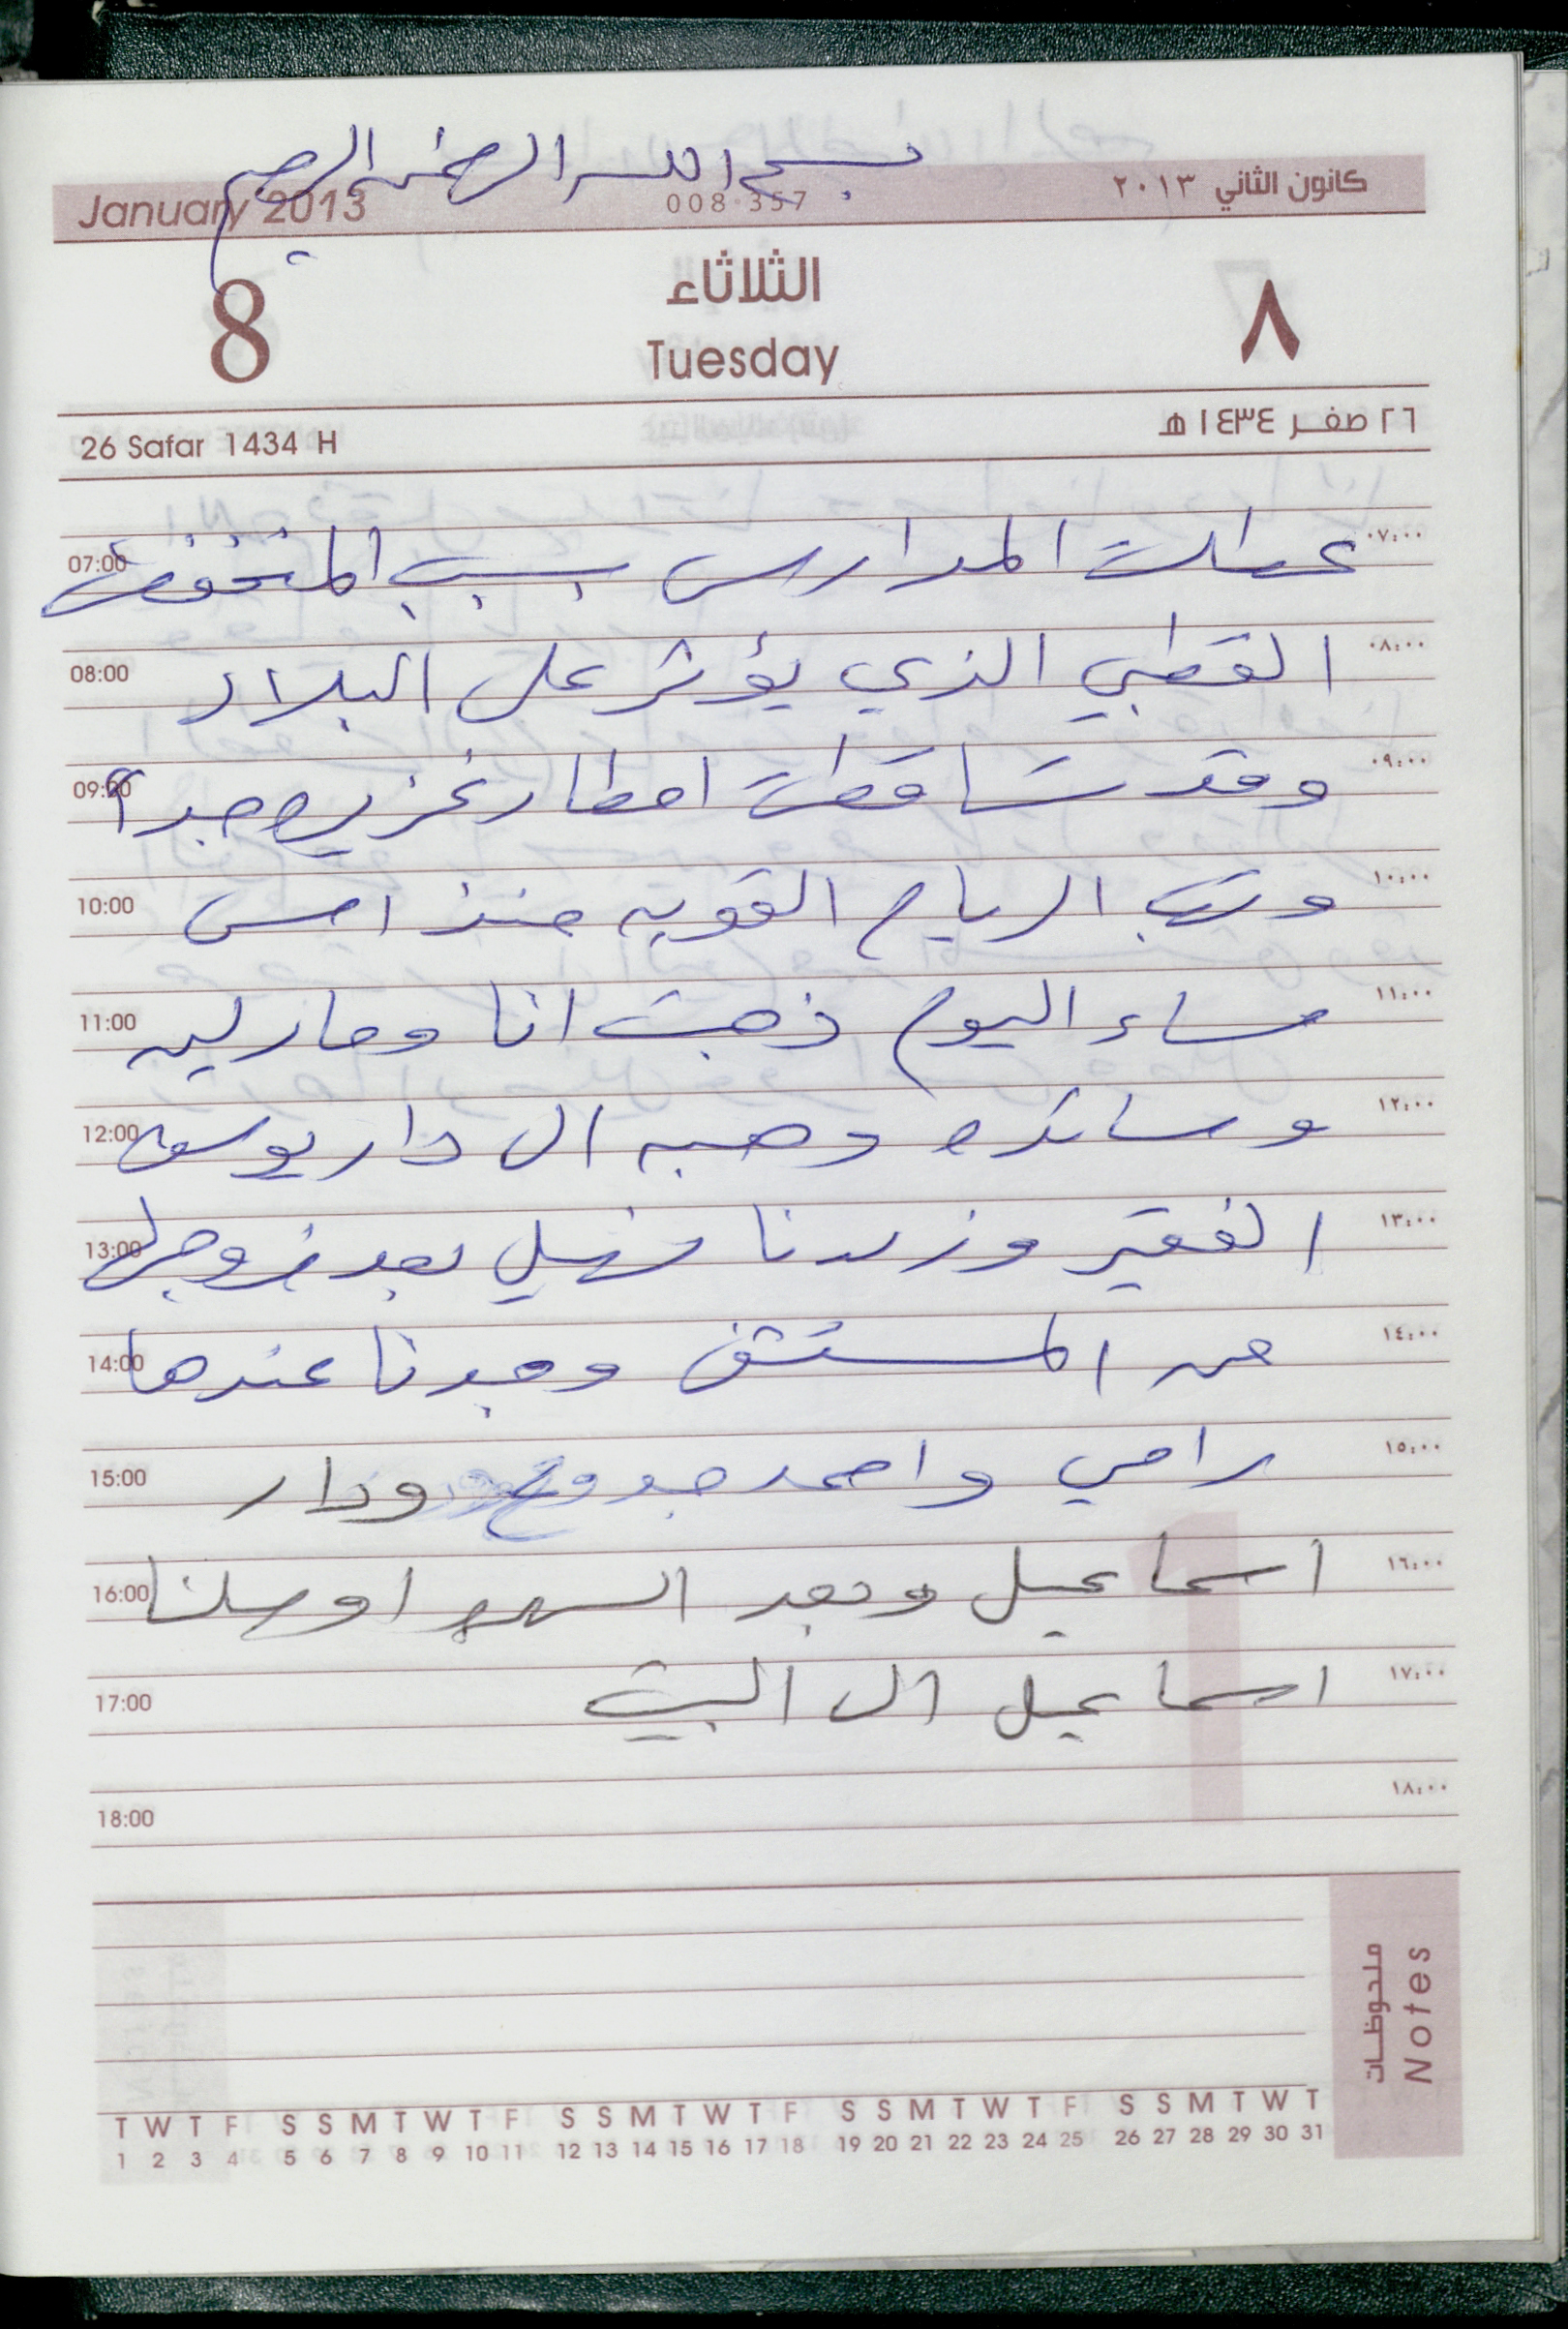 بسم الله الرحمن الرحيم
January 2013 008-357 كانون الثاني ٢٠١٣
8 الثلاثاء ٨
Tuesday
26 Safar 1434 H ٢٦ صفر ١٤٣٤ هـ
07:00 عطلت المدارس بسبب المنخفض ٠٧:٠٠
08:00 القطبي الذي يؤثر على البلاد ٠٨:٠٠
09:00 وقد تساقطت امطار غزيره جداً ٠٩:٠٠
10:00 وتهب الرياح القويه منذ امس ١٠:٠٠
11:00 مساء اليوم ذهبت انا ومارلين ١١:٠٠
12:00 وسائده وهبه الى دار يوسف ١٢:٠٠
13:00 الفقير وزرنا بعد خروجها ١٣:٠٠
14:00 من المستشفى وجدنا عندها ١٤:٠٠
15:00 رامي واحمد جدوع ودار ١٥:٠٠
16:00 اسماعيل وبعد السهره اوصلنا ١٦:٠٠
17:00 اسماعيل الى البيت ١٧:٠٠
18:00 ١٨:٠٠
ملحوظات
Notes
T W T F S S M T W T F S S M T W T F S S M T W T F S S M T W T
1 2 3 4 5 6 7 8 9 10 11 12 13 14 15 16 17 18 19 20 21 22 23 24 25 26 27 28 29 30 31